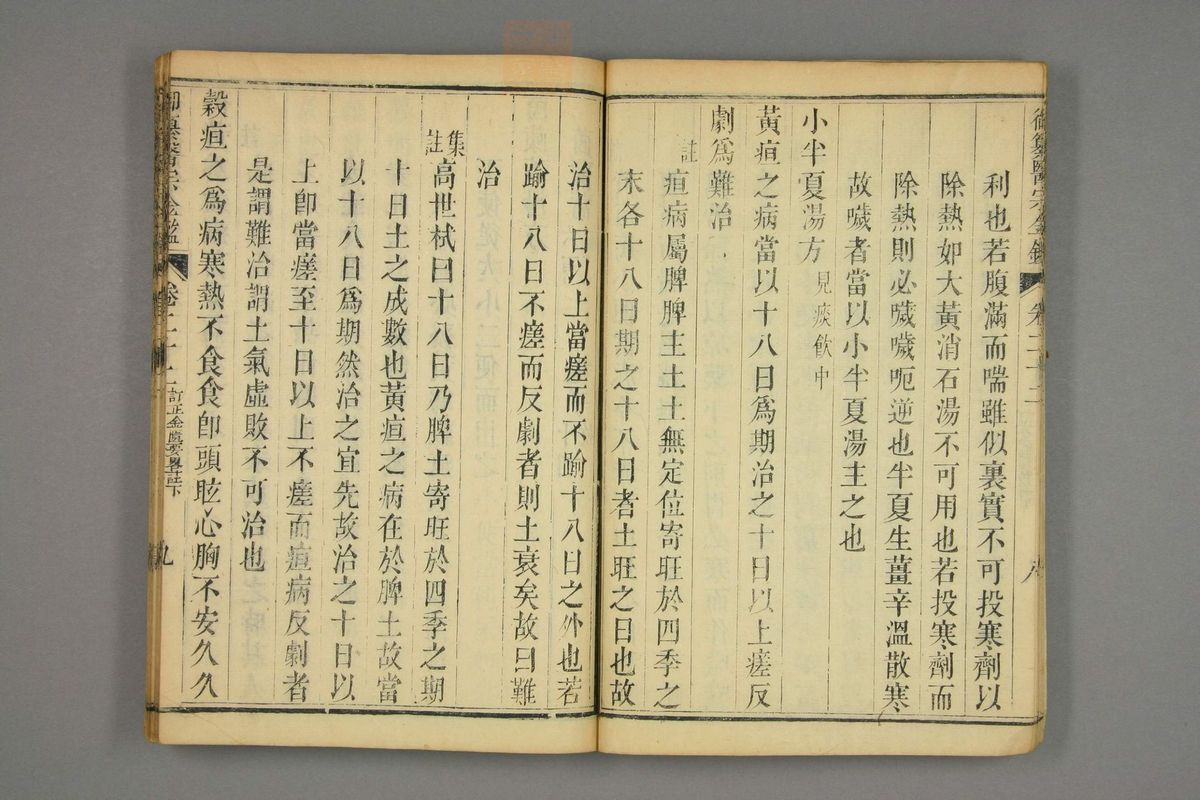 御纂醫宗金鑑 卷二十二 八
利也若腹滿而喘雖似裏實不可投寒劑以
除熱如大黃消石湯不可用也若投寒劑而
除熱則必噦噦呃逆也半夏生薑辛溫散寒
故噦者當以小半夏湯主之也
小半夏湯方 見痰飲中
黃疸之病當以十八日爲期治之十日以上瘥反
劇爲難治
註 疸病屬脾脾主土土無定位寄旺於四季之
末各十八日期之十八日者土旺之日也故
治十日以上當瘥而不踰十八日之外也若
踰十八日不瘥而反劇者則土衰矣故曰難
治
集註 高世栻曰十八日乃脾土寄旺於四季之期
十日土之成數也黃疸之病在於脾土故當
以十八日爲期然治之宜先故治之十日以
上卽當瘥至十日以上不瘥而疸病反劇者
是謂難治謂土氣虛敗不可治也
穀疸之爲病寒熱不食食卽頭眩心胸不安久久
御纂醫宗金鑑 卷二十二 訂正金匱要畧註下 九